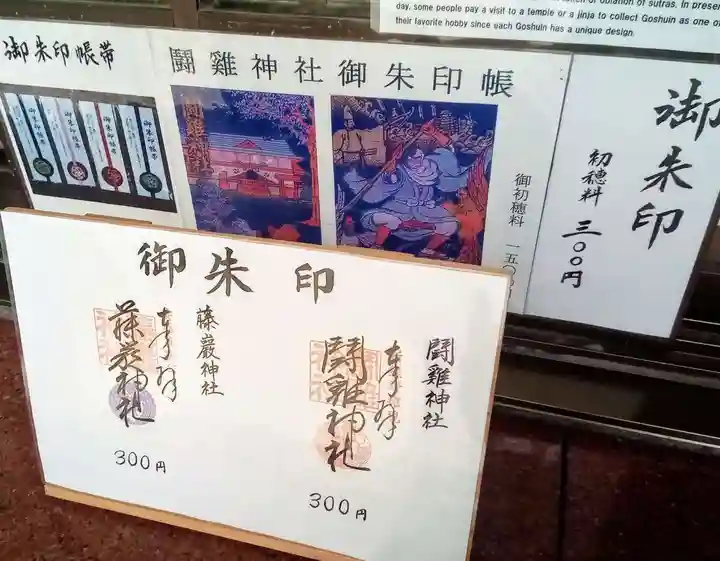 day, some people pay a visit to a temple or a jinja to collect Goshuin as one o
their favorite hobby since each Goshuin has a unique design.
御朱印帳帯
闘雞神社御朱印帳
御初穂料 一五〇〇円
御朱印
初穂料 三〇〇円
御朱印
藤巖神社
奉拝
藤巖神社
300円
闘雞神社
奉拝
闘雞神社
300円